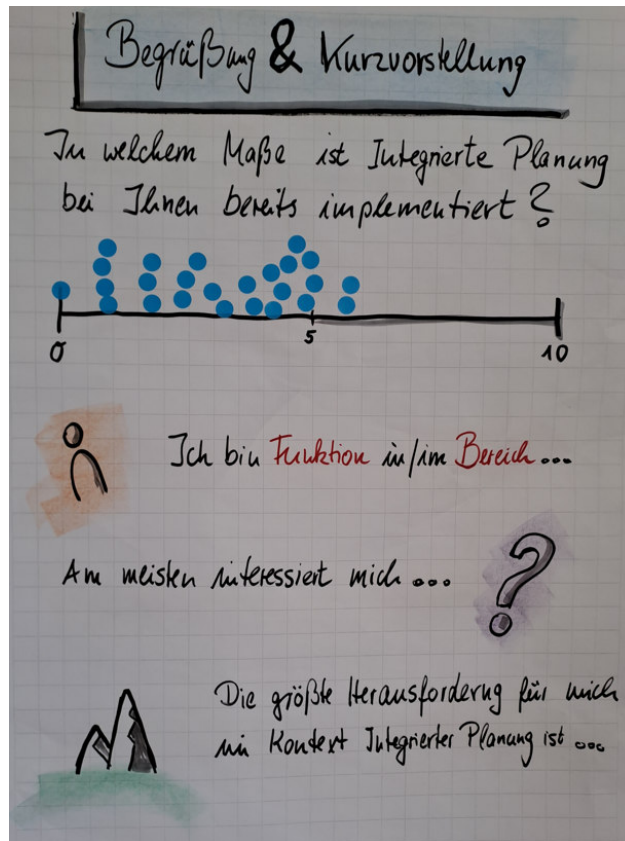 Begrüßung & Kurzvorstellung
In welchem Maße ist Integrierte Planung
bei Ihnen bereits implementiert?
0 5 10
Ich bin Funktion in/im Bereich...
Am meisten interessiert mich... ?
Die größte Herausforderung für mich
im Kontext Integrierter Planung ist...